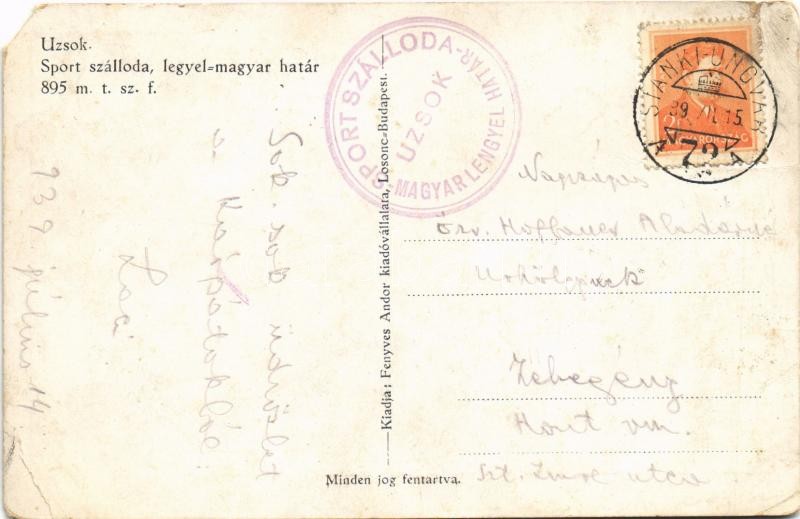 Uzsok.
Sport szálloda, legyel=magyar határ
895 m. t. sz. f.
SPORT SZÁLLODA-
UZSOK
MAGYAR LENGYEL HATÁR-
SIANKI-UNGVÁR
39. VII. 15
72
A
MAGYARORSZÁG
Kiadja: Fenyves Andor kiadóvállalata, Losonc-Budapest.
Sok sok üdvözlet
a Kárpátokból
Laci
939. július 14.
Nagyságos
Özv. Hoffauer Aladárné
Zebegény
Hont vm.
Szt. Imre utca
Minden jog fentartva.